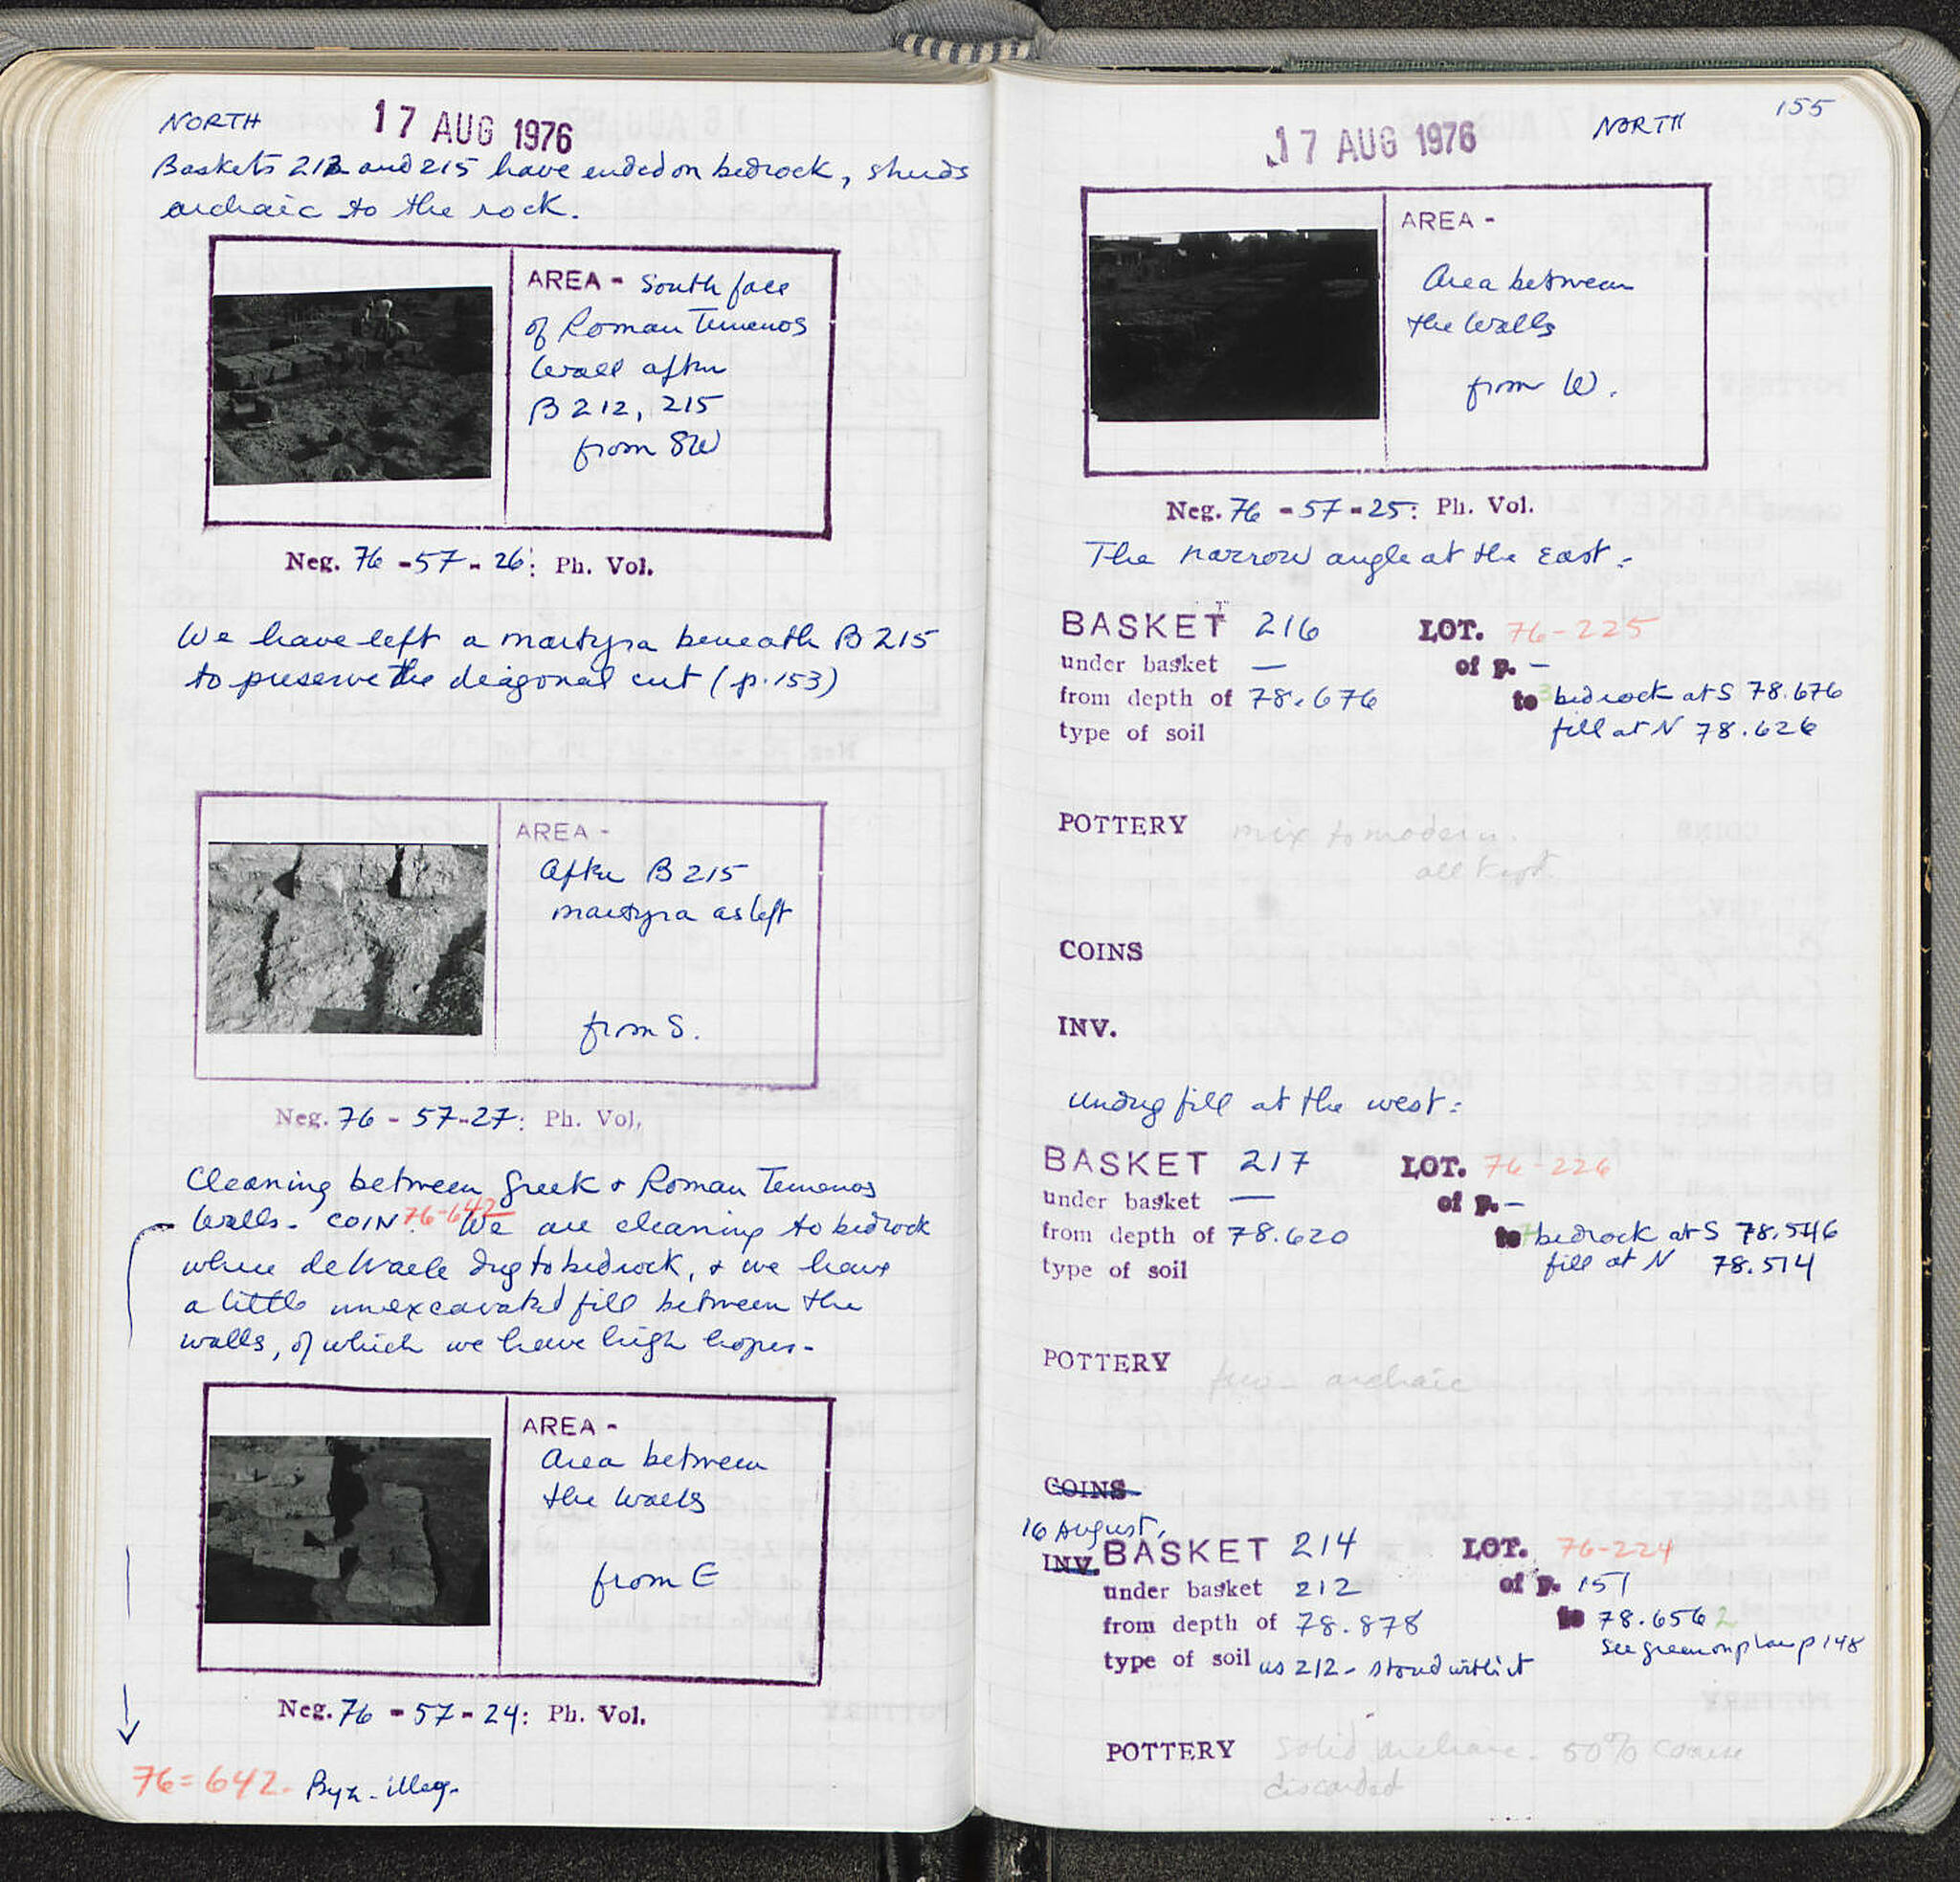 NORTH
17 AUG 1976
Baskets 212 and 215 have ended on bedrock, sherds
archaic to the rock.
AREA - South face
of Roman Temenos
Wall after
B 212, 215
from SW
Neg. 76 - 57 - 26: Ph. Vol.
We have left a martyra beneath B 215
to preserve the diagonal cut (p. 153)
AREA -
After B 215
martyra as left
from S.
Neg. 76 - 57-27: Ph. Vol.
Cleaning between Greek + Roman Temenos
Walls - COIN 76-642 We are cleaning to bedrock
where deWaele dug to bedrock, + we have
a little unexcavated fill between the
walls, of which we have high hopes -
AREA -
Area between
the Walls
from E
Neg. 76 - 57 - 24: Ph. Vol.
76=642 - Byz - illeg.
155
17 AUG 1976
NORTH
AREA -
Area between
the Walls
from W.
Neg. 76 - 57 - 25: Ph. Vol.
The narrow angle at the East :
BASKET 216 LOT. 76-225
under basket — of p. —
from depth of 78.676 to 3 bedrock at S 78.676
fill at N 78.626
type of soil
POTTERY mix to modern.
all kept.
COINS
INV.
undug fill at the west :
BASKET 217 LOT. 76-226
under basket — of p. —
from depth of 78.620 to bedrock at S 78.546
fill at N 78.514
type of soil
POTTERY few - archaic
COINS
16 August,
INV. BASKET 214 LOT. 76-224
under basket 212 of p. 151
from depth of 78.878 to 78.656 2
see green on plan p 148
type of soil as 212 - stored with it
POTTERY Solid archaic - 50% coarse
discarded